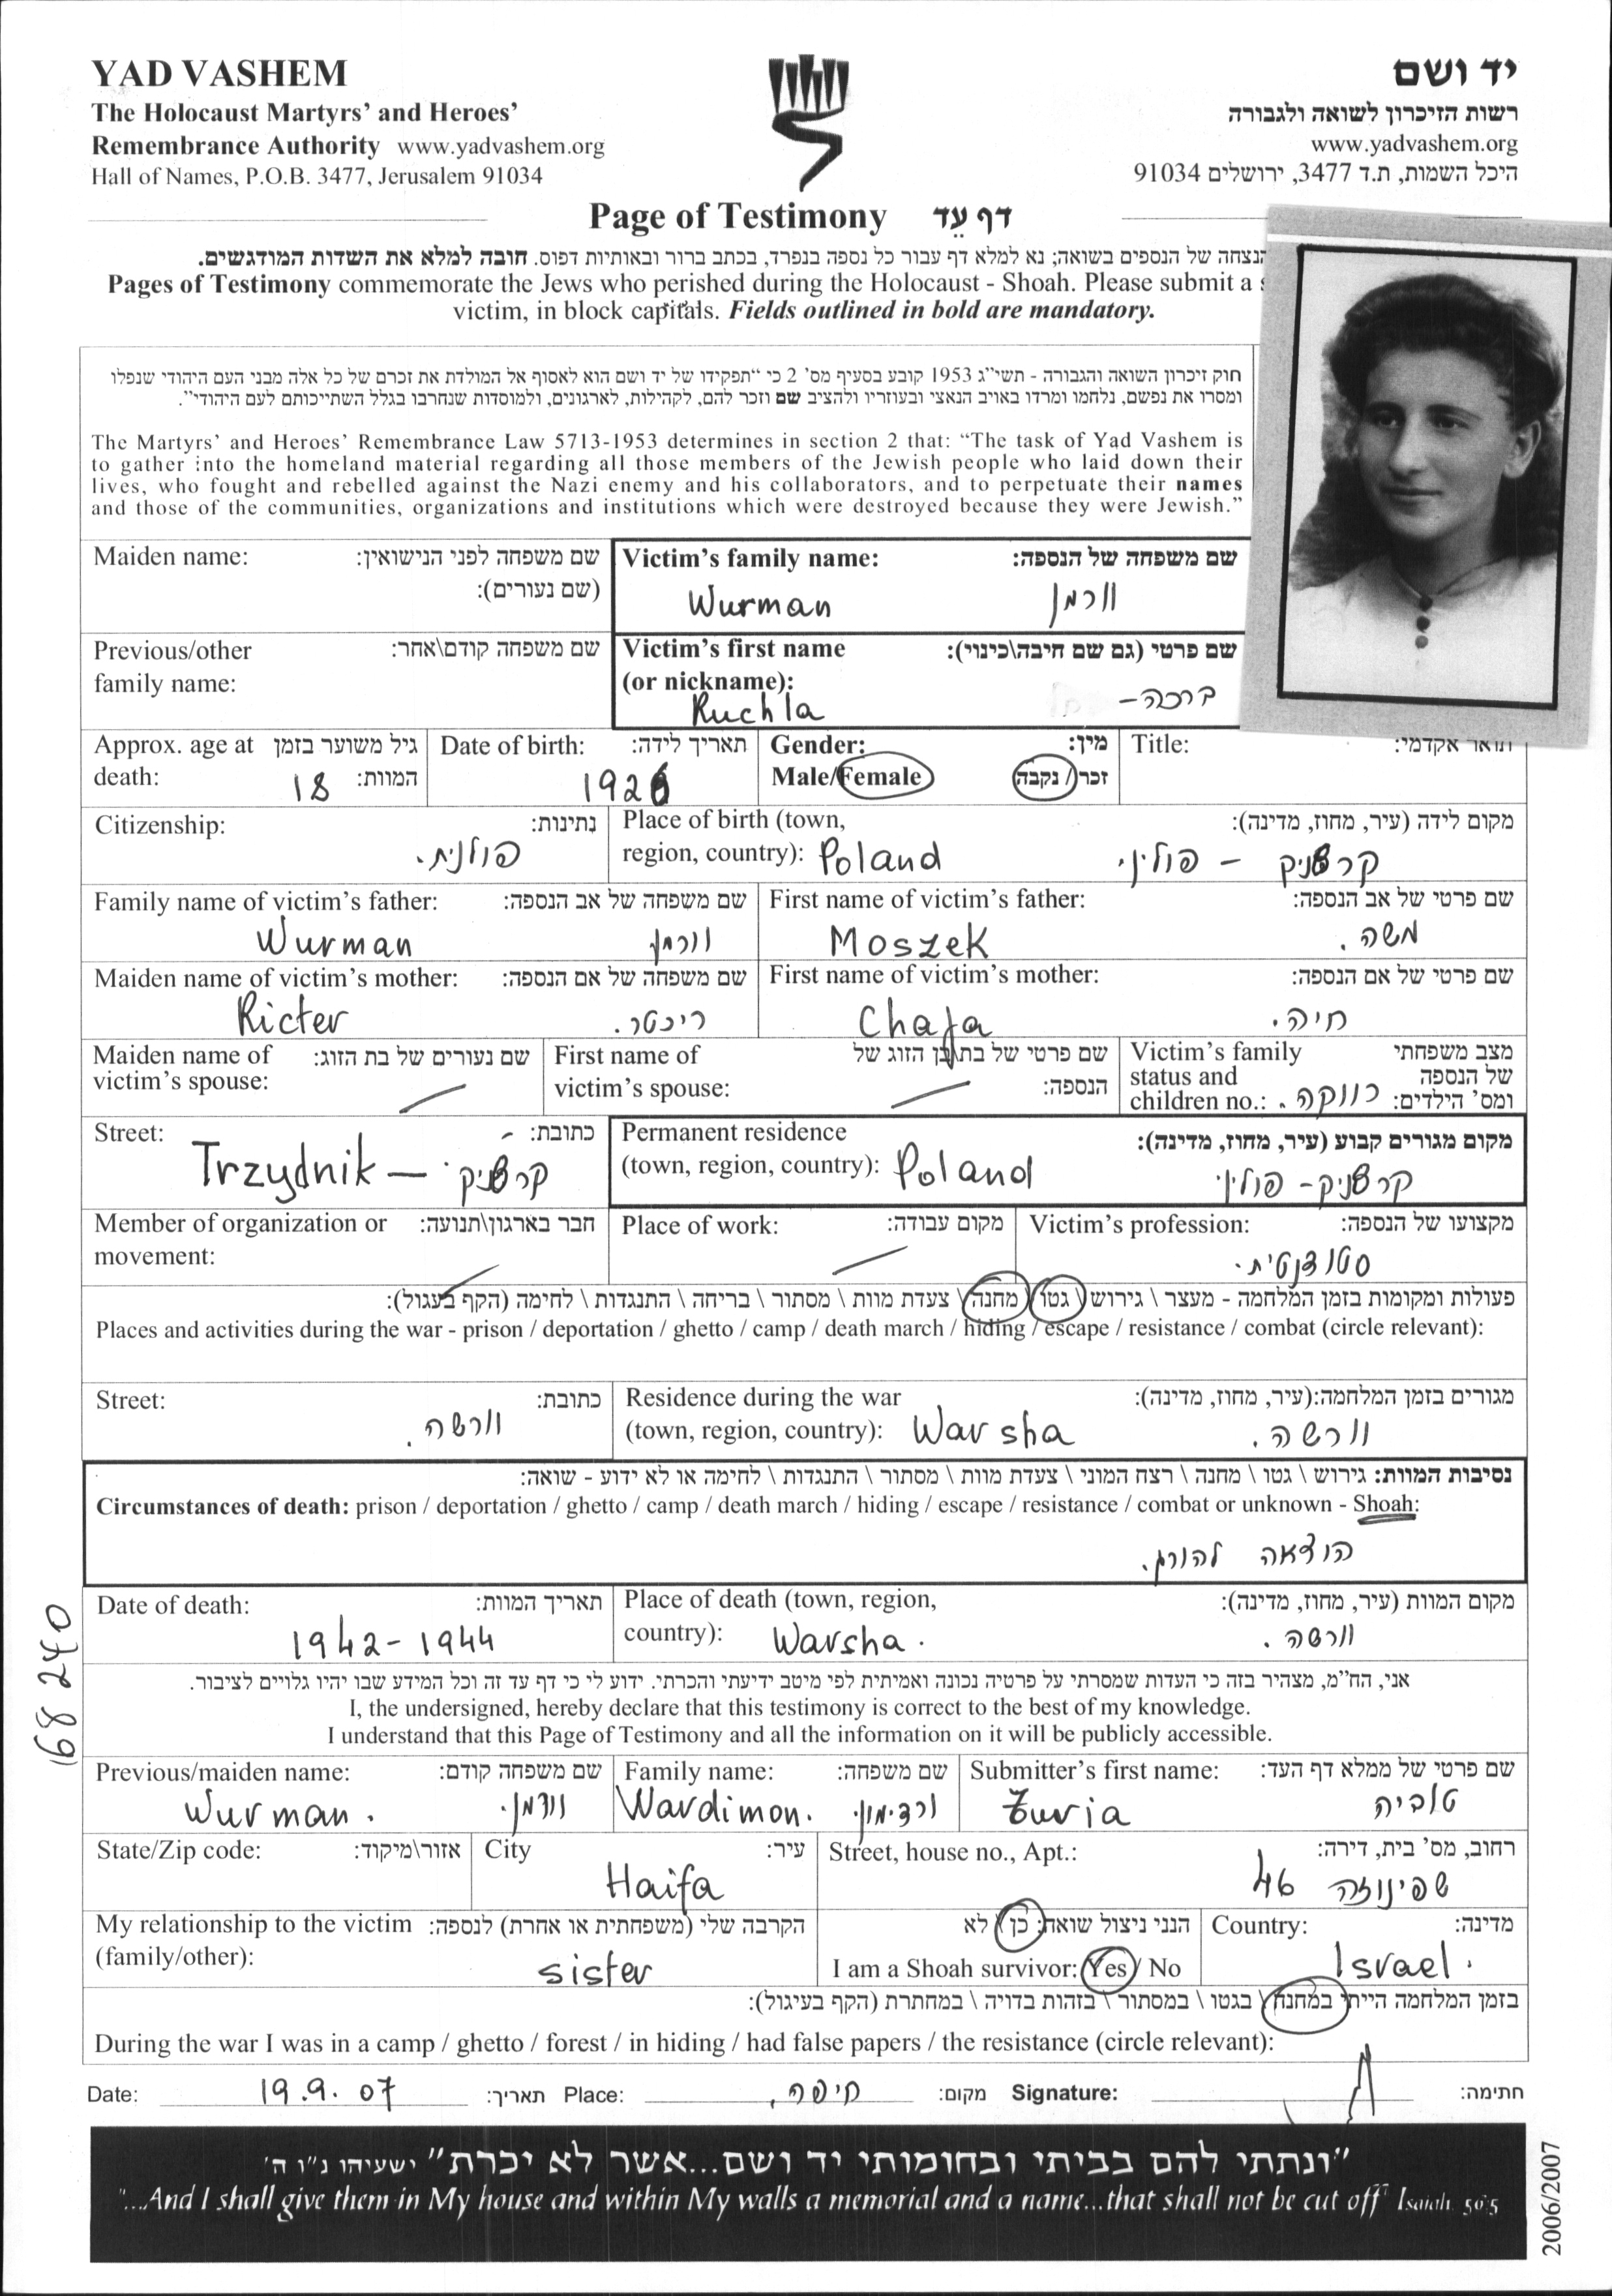 YAD VASHEM
The Holocaust Martyrs' and Heroes'
Remembrance Authority www.yadvashem.org
Hall of Names, P.O.B. 3477, Jerusalem 91034
יד ושם
רשות הזיכרון לשואה ולגבורה
www.yadvashem.org
היכל השמות, ת.ד 3477, ירושלים 91034
Page of Testimony דף עֵד
הנצחה של הנספים בשואה; נא למלא דף עבור כל נספה בנפרד, בכתב ברור ובאותיות דפוס. חובה למלא את השדות המודגשים.
Pages of Testimony commemorate the Jews who perished during the Holocaust - Shoah. Please submit a
victim, in block capitals. Fields outlined in bold are mandatory.
חוק זיכרון השואה והגבורה - תשי"ג 1953 קובע בסעיף מס' 2 כי "תפקידו של יד ושם הוא לאסוף אל המולדת את זכרם של כל אלה מבני העם היהודי שנפלו
ומסרו את נפשם, נלחמו ומרדו באויב הנאצי ובעוזריו ולהציב שם וזכר להם, לקהילות, לארגונים, ולמוסדות שנחרבו בגלל השתייכותם לעם היהודי".
The Martyrs' and Heroes' Remembrance Law 5713-1953 determines in section 2 that: "The task of Yad Vashem is
to gather into the homeland material regarding all those members of the Jewish people who laid down their
lives, who fought and rebelled against the Nazi enemy and his collaborators, and to perpetuate their names
and those of the communities, organizations and institutions which were destroyed because they were Jewish."
Maiden name: שם משפחה לפני הנישואין:
(שם נעורים):
Victim's family name: שם משפחה של הנספה:
Wurman וורמן
Previous/other שם משפחה קודם\אחר:
family name:
Victim's first name שם פרטי (גם שם חיבה\כינוי):
(or nickname):
Ruchla ברכה-
Approx. age at גיל משוער בזמן
death: 18 המוות:
Date of birth: תאריך לידה:
1926
Gender: מין:
Male/Female זכר/נקבה
Title: תואר אקדמי:
Citizenship: נתינות:
פולנית.
Place of birth (town, מקום לידה (עיר, מחוז, מדינה):
region, country): Poland קרשניק - פולין.
Family name of victim's father: שם משפחה של אב הנספה:
Wurman וורמן
First name of victim's father: שם פרטי של אב הנספה:
Moszek משה.
Maiden name of victim's mother: שם משפחה של אם הנספה:
Ricter ריכטר.
First name of victim's mother: שם פרטי של אם הנספה:
Chaja חיה.
Maiden name of שם נעורים של בת הזוג:
victim's spouse:
First name of שם פרטי של בת\בן הזוג של
victim's spouse: הנספה:
Victim's family מצב משפחתי
status and של הנספה
children no.: ומס' הילדים: רווקה.
Street: כתובת:
Trzydnik - קרשניק
Permanent residence מקום מגורים קבוע (עיר, מחוז, מדינה):
(town, region, country): Poland קרשניק - פולין
Member of organization or חבר בארגון\תנועה:
movement:
Place of work: מקום עבודה:
Victim's profession: מקצועו של הנספה:
סטודנטית.
פעולות ומקומות בזמן המלחמה - מעצר \ גירוש \ גטו \ מחנה \ צעדת מוות \ מסתור \ בריחה \ התנגדות \ לחימה (הקף בעגול):
Places and activities during the war - prison / deportation / ghetto / camp / death march / hiding / escape / resistance / combat (circle relevant):
Street: כתובת:
וורשה.
Residence during the war מגורים בזמן המלחמה:(עיר, מחוז, מדינה):
(town, region, country): Warsha וורשה.
נסיבות המוות: גירוש \ גטו \ מחנה \ רצח המוני \ צעדת מוות \ מסתור \ התנגדות \ לחימה או לא ידוע - שואה:
Circumstances of death: prison / deportation / ghetto / camp / death march / hiding / escape / resistance / combat or unknown - Shoah:
הוצאה להורג.
Date of death: תאריך המוות:
1942-1944
Place of death (town, region, מקום המוות (עיר, מחוז, מדינה):
country): Warsha. וורשה.
אני, הח"מ, מצהיר בזה כי העדות שמסרתי על פרטיה נכונה ואמיתית לפי מיטב ידיעתי והכרתי. ידוע לי כי דף עד זה וכל המידע שבו יהיו גלויים לציבור.
I, the undersigned, hereby declare that this testimony is correct to the best of my knowledge.
I understand that this Page of Testimony and all the information on it will be publicly accessible.
Previous/maiden name: שם משפחה קודם:
Wurman. וורמן.
Family name: שם משפחה:
Wardimon. ורדימון.
Submitter's first name: שם פרטי של ממלא דף העד:
Tuvia טוביה
State/Zip code: אזור\מיקוד:
City עיר:
Haifa
Street, house no., Apt.: רחוב, מס' בית, דירה:
שפינוזה 46
My relationship to the victim הקרבה שלי (משפחתית או אחרת) לנספה:
(family/other): sister
הנני ניצול שואה: כן \ לא
I am a Shoah survivor: Yes / No
Country: מדינה:
Israel.
בזמן המלחמה הייתי במחנה \ בגטו \ במסתור \ בזהות בדויה \ במחתרת (הקף בעיגול):
During the war I was in a camp / ghetto / forest / in hiding / had false papers / the resistance (circle relevant):
Date: 19.9.07 תאריך: Place: חיפה, מקום: Signature: חתימה:
"ונתתי להם בביתי ובחומותי יד ושם...אשר לא יכרת" ישעיהו נ"ו ה'
"...And I shall give them in My house and within My walls a memorial and a name...that shall not be cut off" Isaiah. 56:5
168240
2006/2007